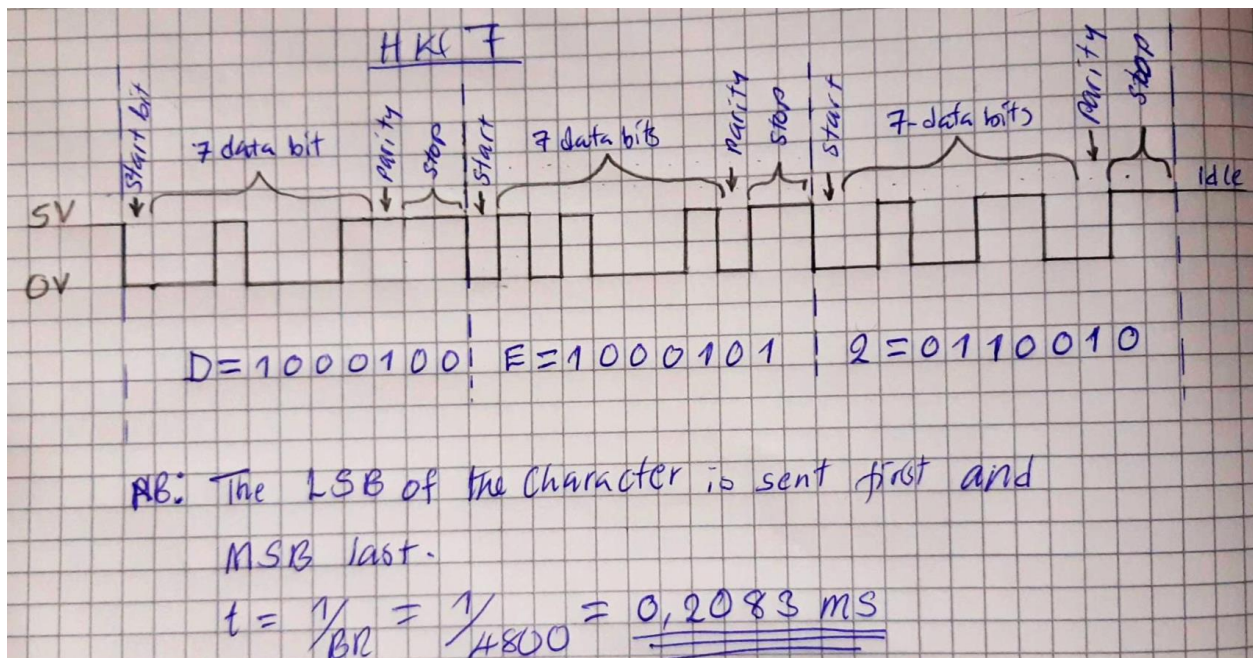 HW 7
Start bit 7 data bit Parity Stop Start 7 data bits Parity Stop Start 7-data bits Parity Stop
Idle
5V
0V
D=1000100 E=1000101 2=0110010
NB: The LSB of the Character is sent first and
MSB last.
t = 1/BR = 1/4800 = 0,2083 ms